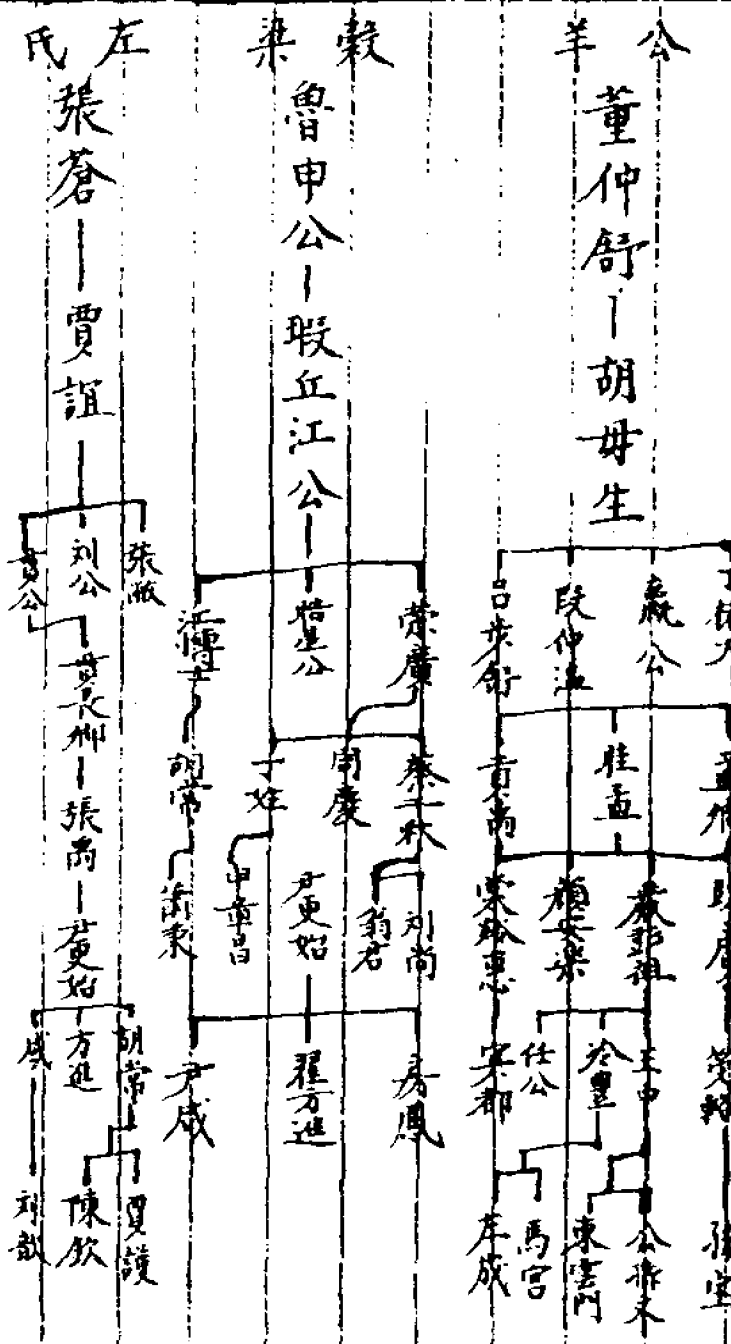 公羊
董仲舒
胡毋生
嬴公
段仲温
呂步舒
眭孟
貢禹
嚴彭祖
顏安樂
王中
冷豐
任公
公孫文
東雲門
馬宮
左咸
穀梁
魯申公
瑕丘江公
榮廣
皓星公
江博士
蔡千秋
周慶
丁姓
胡常
刘尚
翁君
尹更始
申章昌
蕭秉
房鳳
翟方進
尹咸
左氏
張蒼
賈誼
張敞
刘公
貫公
貫長卿
張禹
尹更始
胡常
方進
咸
賈護
陳欽
刘歆